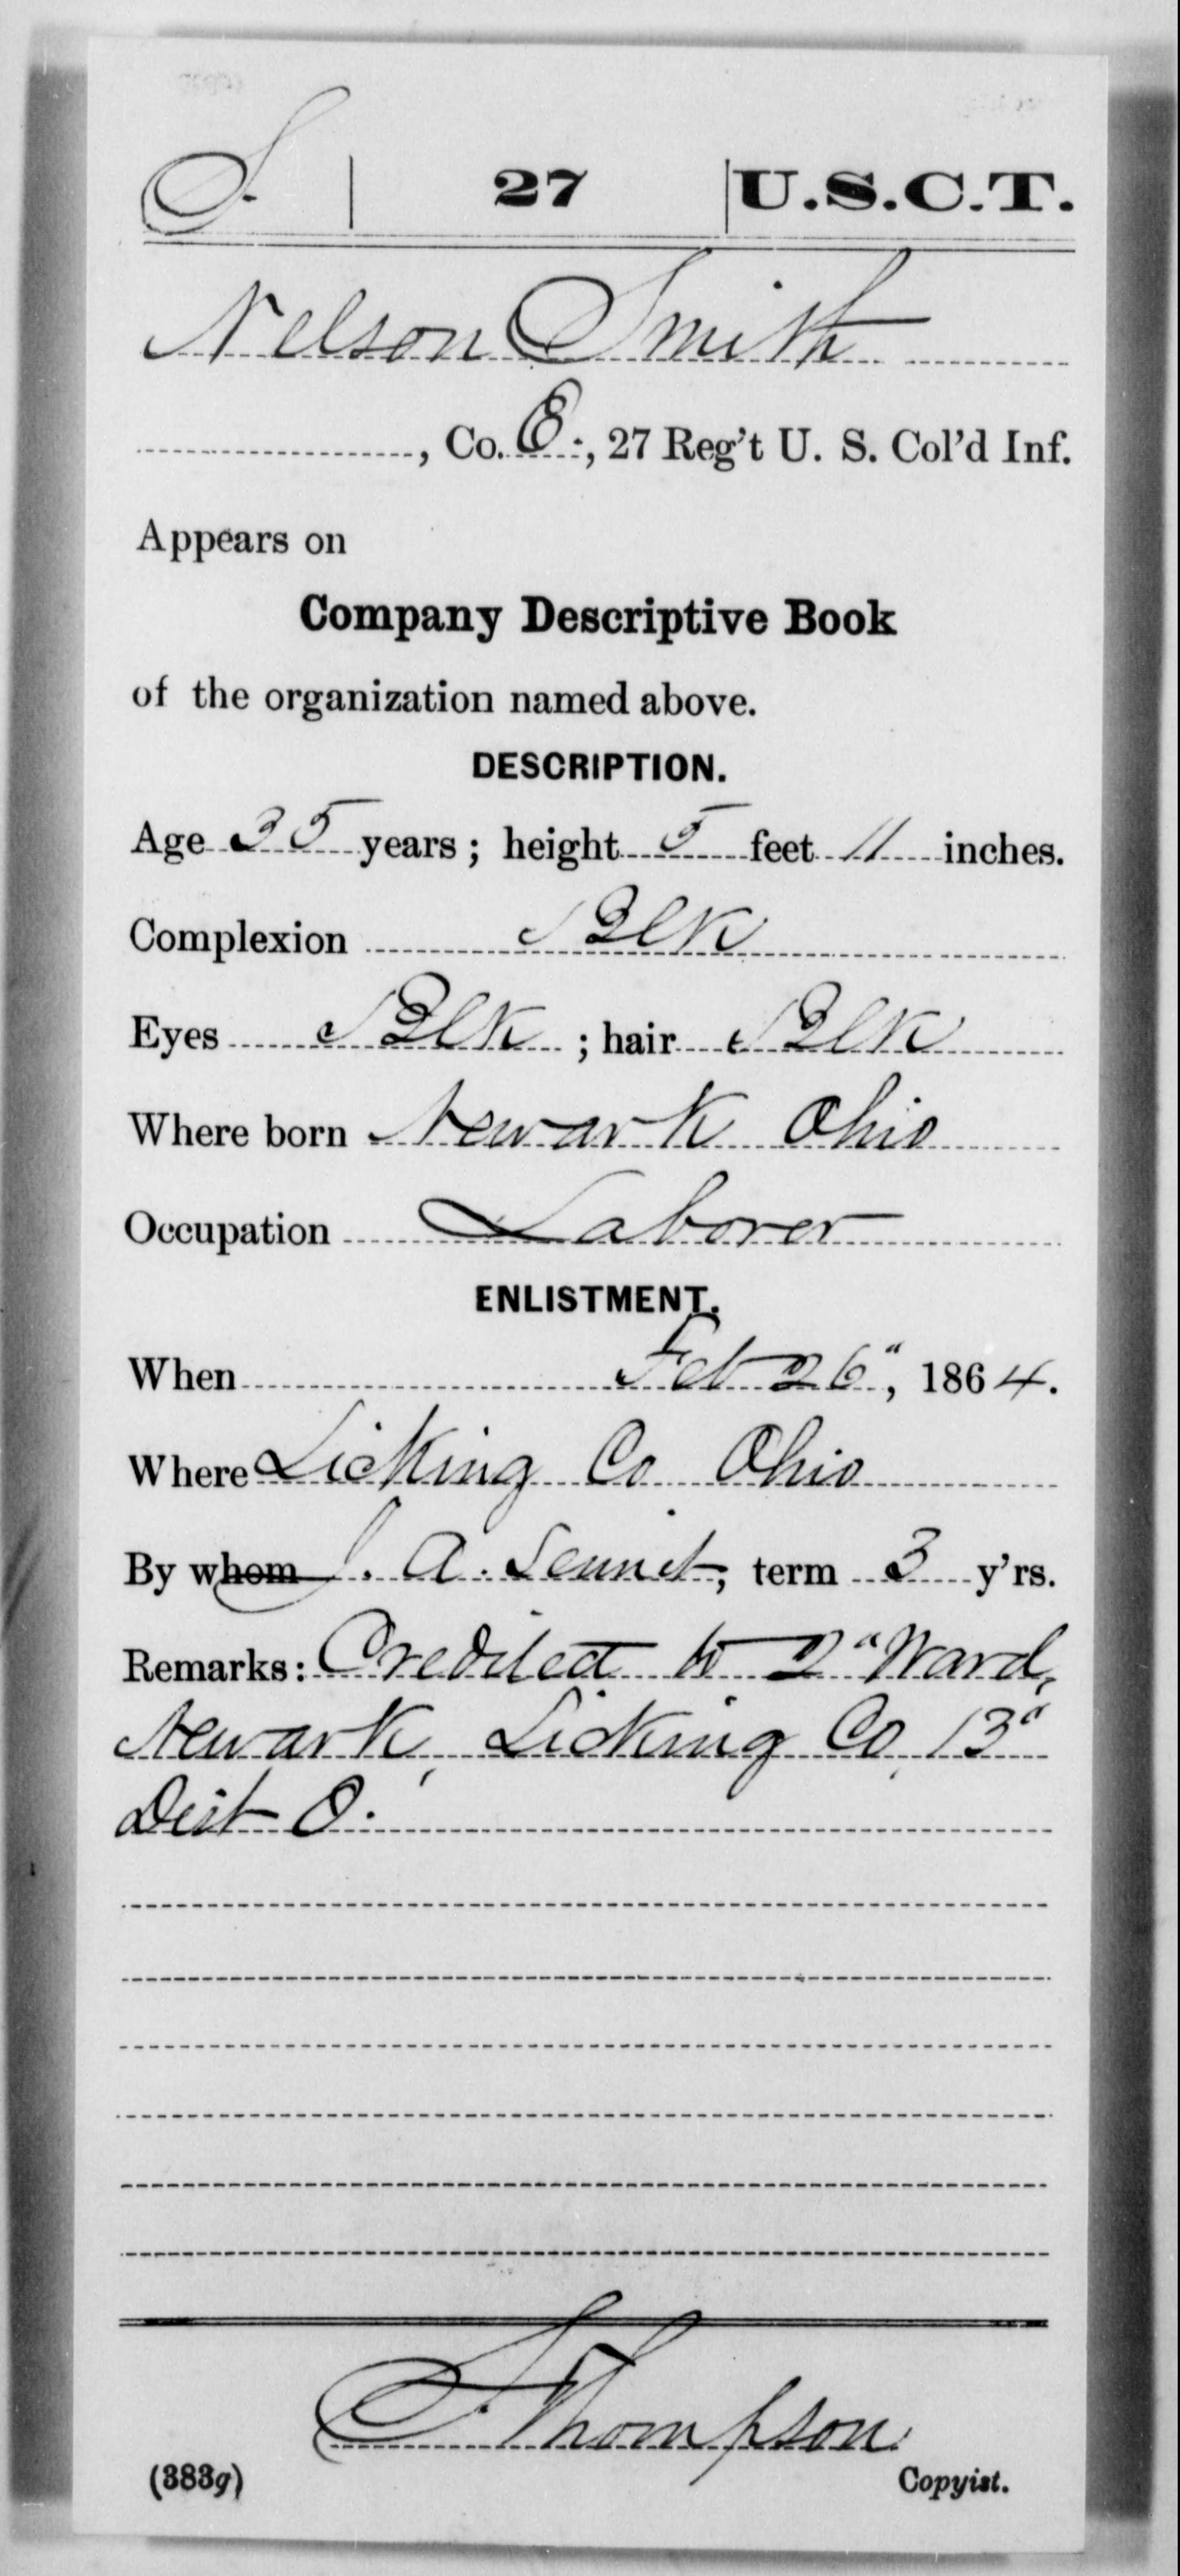 S. | 27 | U.S.C.T.
Nelson Smith
, Co. E., 27 Reg't U. S. Col'd Inf.
Appears on
Company Descriptive Book
of the organization named above.
DESCRIPTION.
Age 35 years; height 5 feet 11 inches.
Complexion Blk
Eyes Blk; hair Blk
Where born Newark Ohio
Occupation Laborer
ENLISTMENT.
When Feb 26", 1864.
Where Licking Co Ohio
By whom J. A. , term 3 y'rs.
Remarks: Credited to 2" Ward,
Newark, Licking Co, 13"
Dist O.
S. Thompson
(383g) Copyist.